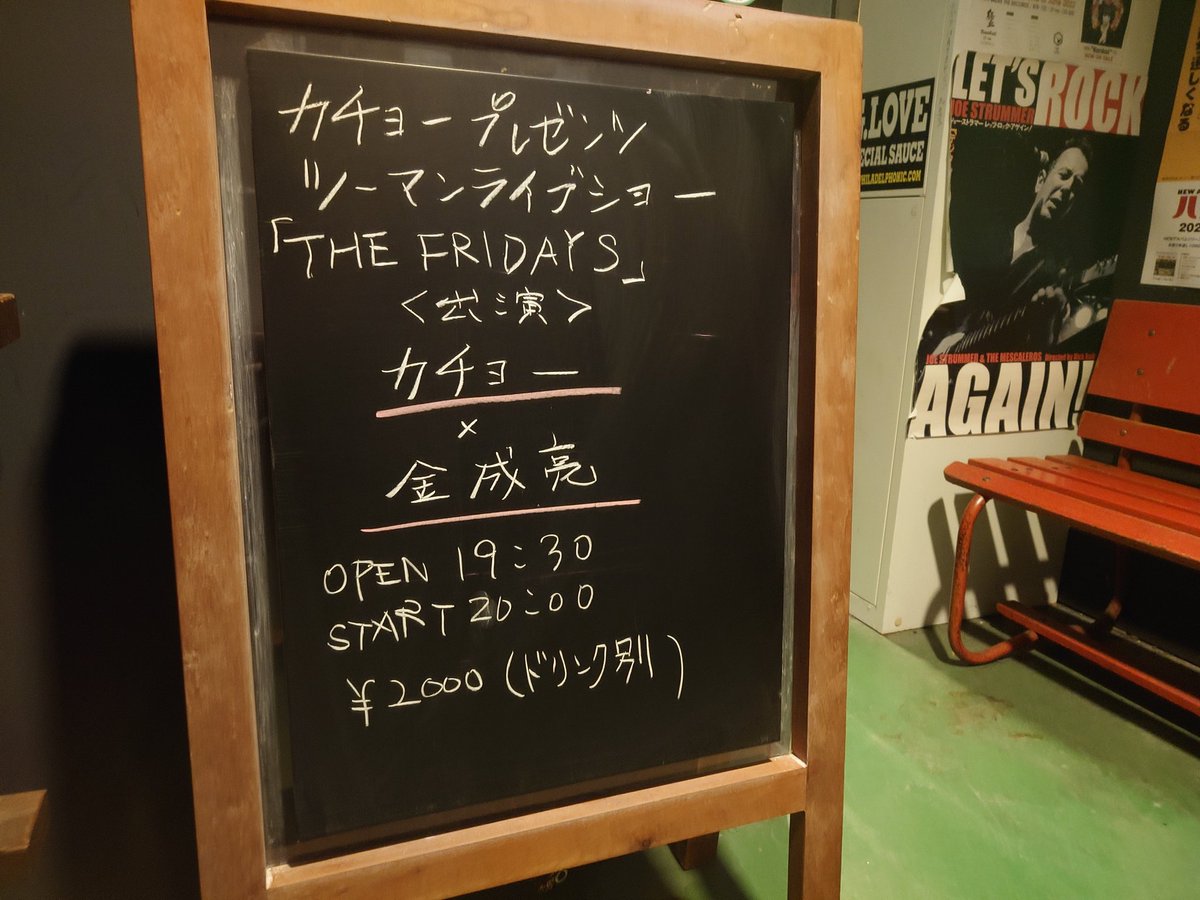 カチョープレゼンツ
ツーマンライブショー
「THE FRIDAYS」
<出演>
カチョー
×
金成亮
OPEN 19:30
START 20:00
¥2000(ドリンク別)
LOVE
ECIAL SAUCE
HILADELPHONIC.COM
LET'S ROCK
JOE STRUMMER
JOE STRUMMER & THE MESCALEROS
AGAIN!
しくなる